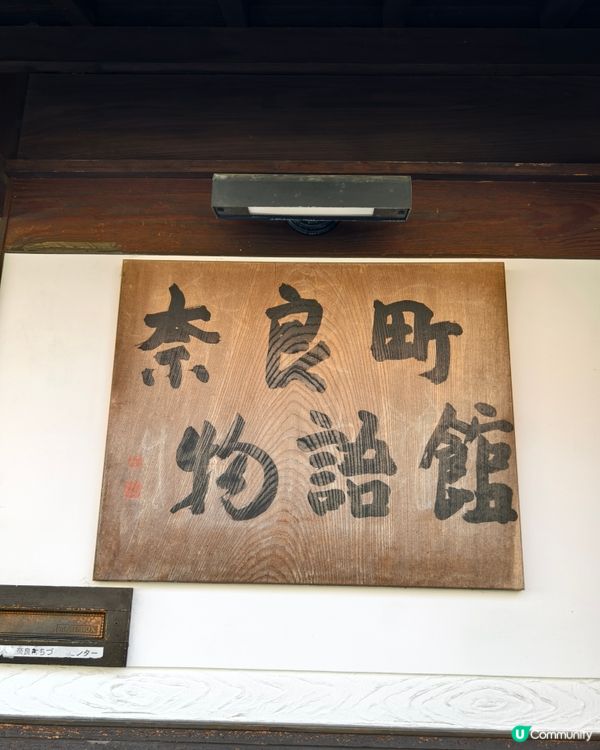 奈良町
物語館
奈良町づ
ンター
U Community